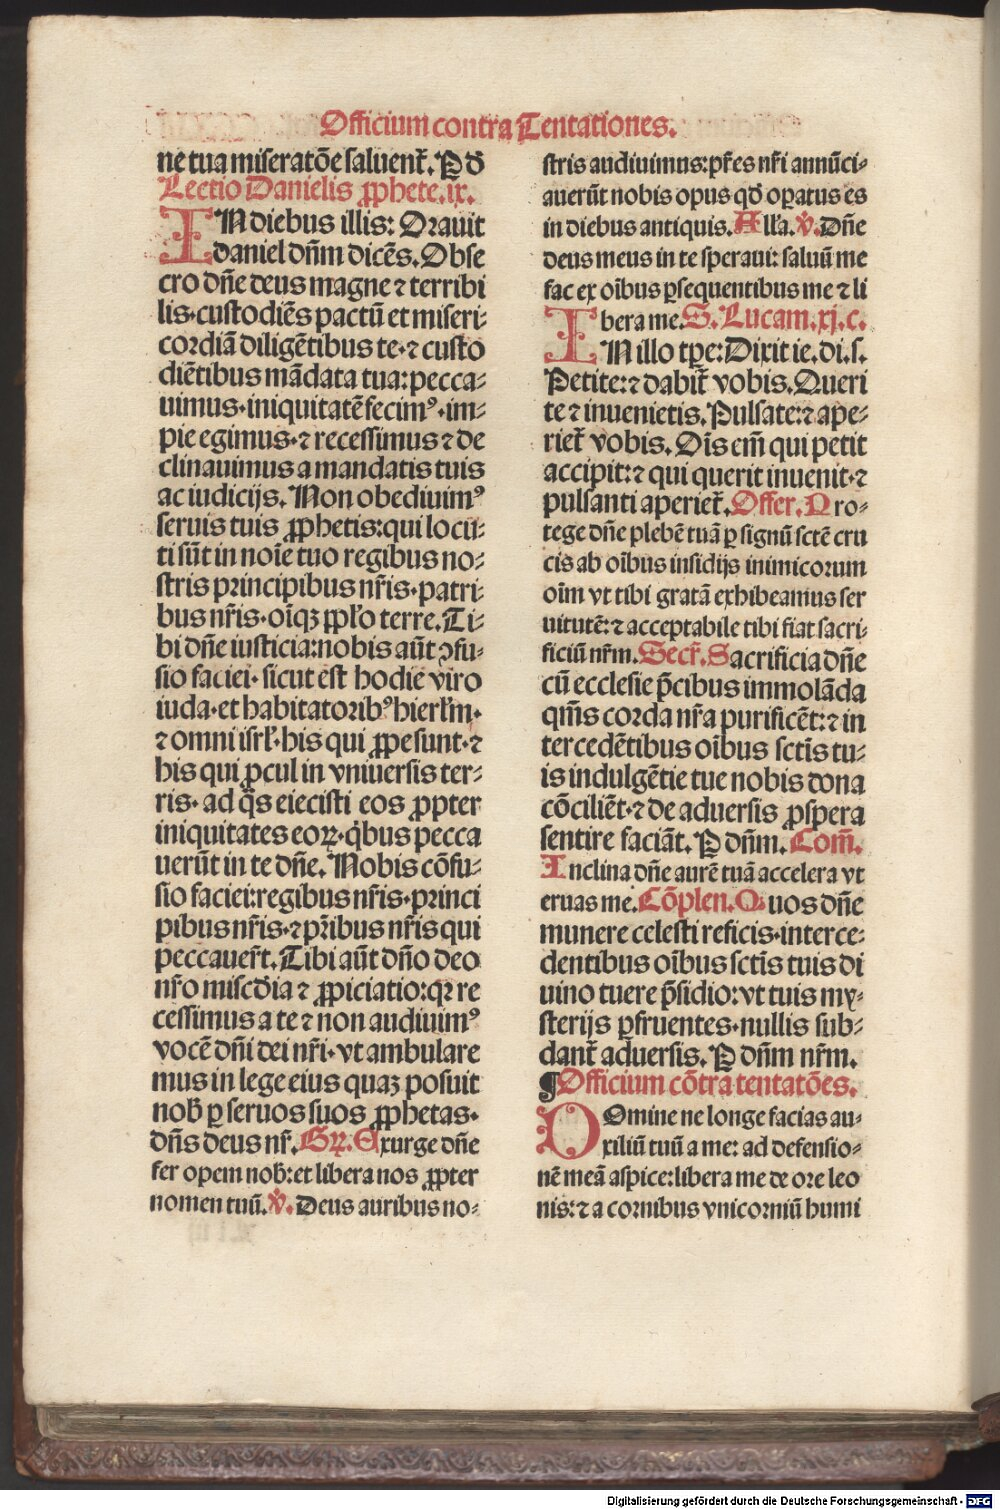 Officium contra Tentationes.
ne tua miseratōe saluent̃. P dñ
Lectio Danielis ꝓphete.ix.
IN diebus illis: Orauit
daniel dñm dicẽs. Obse
cro dñe deus magne ⁊ terribi
lis·custodiẽs pactũ et miseri⸗
cordiã diligẽtibus te·⁊ custo
diẽtibus mãdata tua: pecca⸗
uimus·iniquitatẽ fecimꝰ·im⸗
pie egimus·⁊ recessimus ⁊ de
clinauimus a mandatis tuis
ac iudicijs. Non obediuimꝰ
seruis tuis ꝓphetis: qui locu⸗
ti sũt in noĩe tuo regibus no⸗
stris principibus nr̃is·patri⸗
bus nr̃is·oĩqꝫ pp̃lo terre. Ti⸗
bi dñe iusticia: nobis aũt ꝯfu⸗
sio faciei·sicut est hodie viro
iuda·et habitatoribꝰ hierl̃m·
⁊ omni isrl̃·his qui ꝓpe sunt·⁊
his qui ꝓcul in vniuersis ter⸗
ris·ad q̃s eiecisti eos ꝓpter
iniquitates eoꝝ·q̃bus pecca
uerũt in te dñe. Nobis cõfu⸗
sio faciei: regibus nr̃is·princi
pibus nr̃is·⁊ pr̃ibus nr̃is qui
peccauer̃t. Tibi aũt dño deo
nr̃o misc̃dia ⁊ ꝓpiciatio: qꝛ re
cessimus a te ⁊ non audiuimꝰ
vocẽ dñi dei nr̃i·vt ambulare
mus in lege eius quaꝫ posuit
nob̃ ꝑ seruos suos ꝓphetas·
dñs deus nr̃. Gꝝ. Exurge dñe
fer opem nob̃: et libera nos ꝓpter
nomen tuũ. ℣. Deus auribus no⸗
stris audiuimus: pr̃es nr̃i annũci⸗
auerũt nobis opus qd̃ oꝑatus es
in diebus antiquis. All'a. ℣. Dñe
deus meus in te speraui: saluũ me
fac ex oĩbus ꝑsequentibus me ⁊ li
bera me. S. Lucam.xj.c.
IN illo tꝑe: Dixit ie. di. s.
Petite: ⁊ dabit̃ vobis. Queri
te ⁊ inuenietis. Pulsate: ⁊ ape⸗
riet̃ vobis. Oĩs em̃ qui petit
accipit: ⁊ qui querit inuenit·⁊
pulsanti aperiet̃. Offer. Pro⸗
tege dñe plebẽ tuã ꝑ signũ sctẽ cru
cis ab oĩbus insidijs inimicorum
oĩm vt tibi gratã exhibeamus ser
uitutẽ: ⁊ acceptabile tibi fiat sacri⸗
ficiũ nr̃m. Secr̃. Sacrificia dñe
cũ ecclesie p̃cibus immolãda
qm̃s corda nr̃a purificẽt: ⁊ in
tercedẽtibus oĩbus sctĩs tu⸗
is indulgẽtie tue nobis dona
cõciliẽt·⁊ de aduersis ꝓspera
sentire faciãt. P dñm. Com̃.
Inclina dñe aurẽ tuã accelera vt
eruas me. Cõplen. Quos dñe
munere celesti reficis·interce⸗
dentibus oĩbus sctĩs tuis di
uino tuere p̃sidio: vt tuis my⸗
sterijs ꝑfruentes·nullis sub⸗
dant̃ aduersis. P dñm nr̃m.
¶Officium cõtra tentatões.
DOmine ne longe facias au⸗
xiliũ tuũ a me: ad defensio⸗
nẽ meã aspice: libera me de ore leo
nis: ⁊ a cornibus vnicorniũ humi
Digitalisierung gefördert durch die Deutsche Forschungsgemeinschaft - DFG